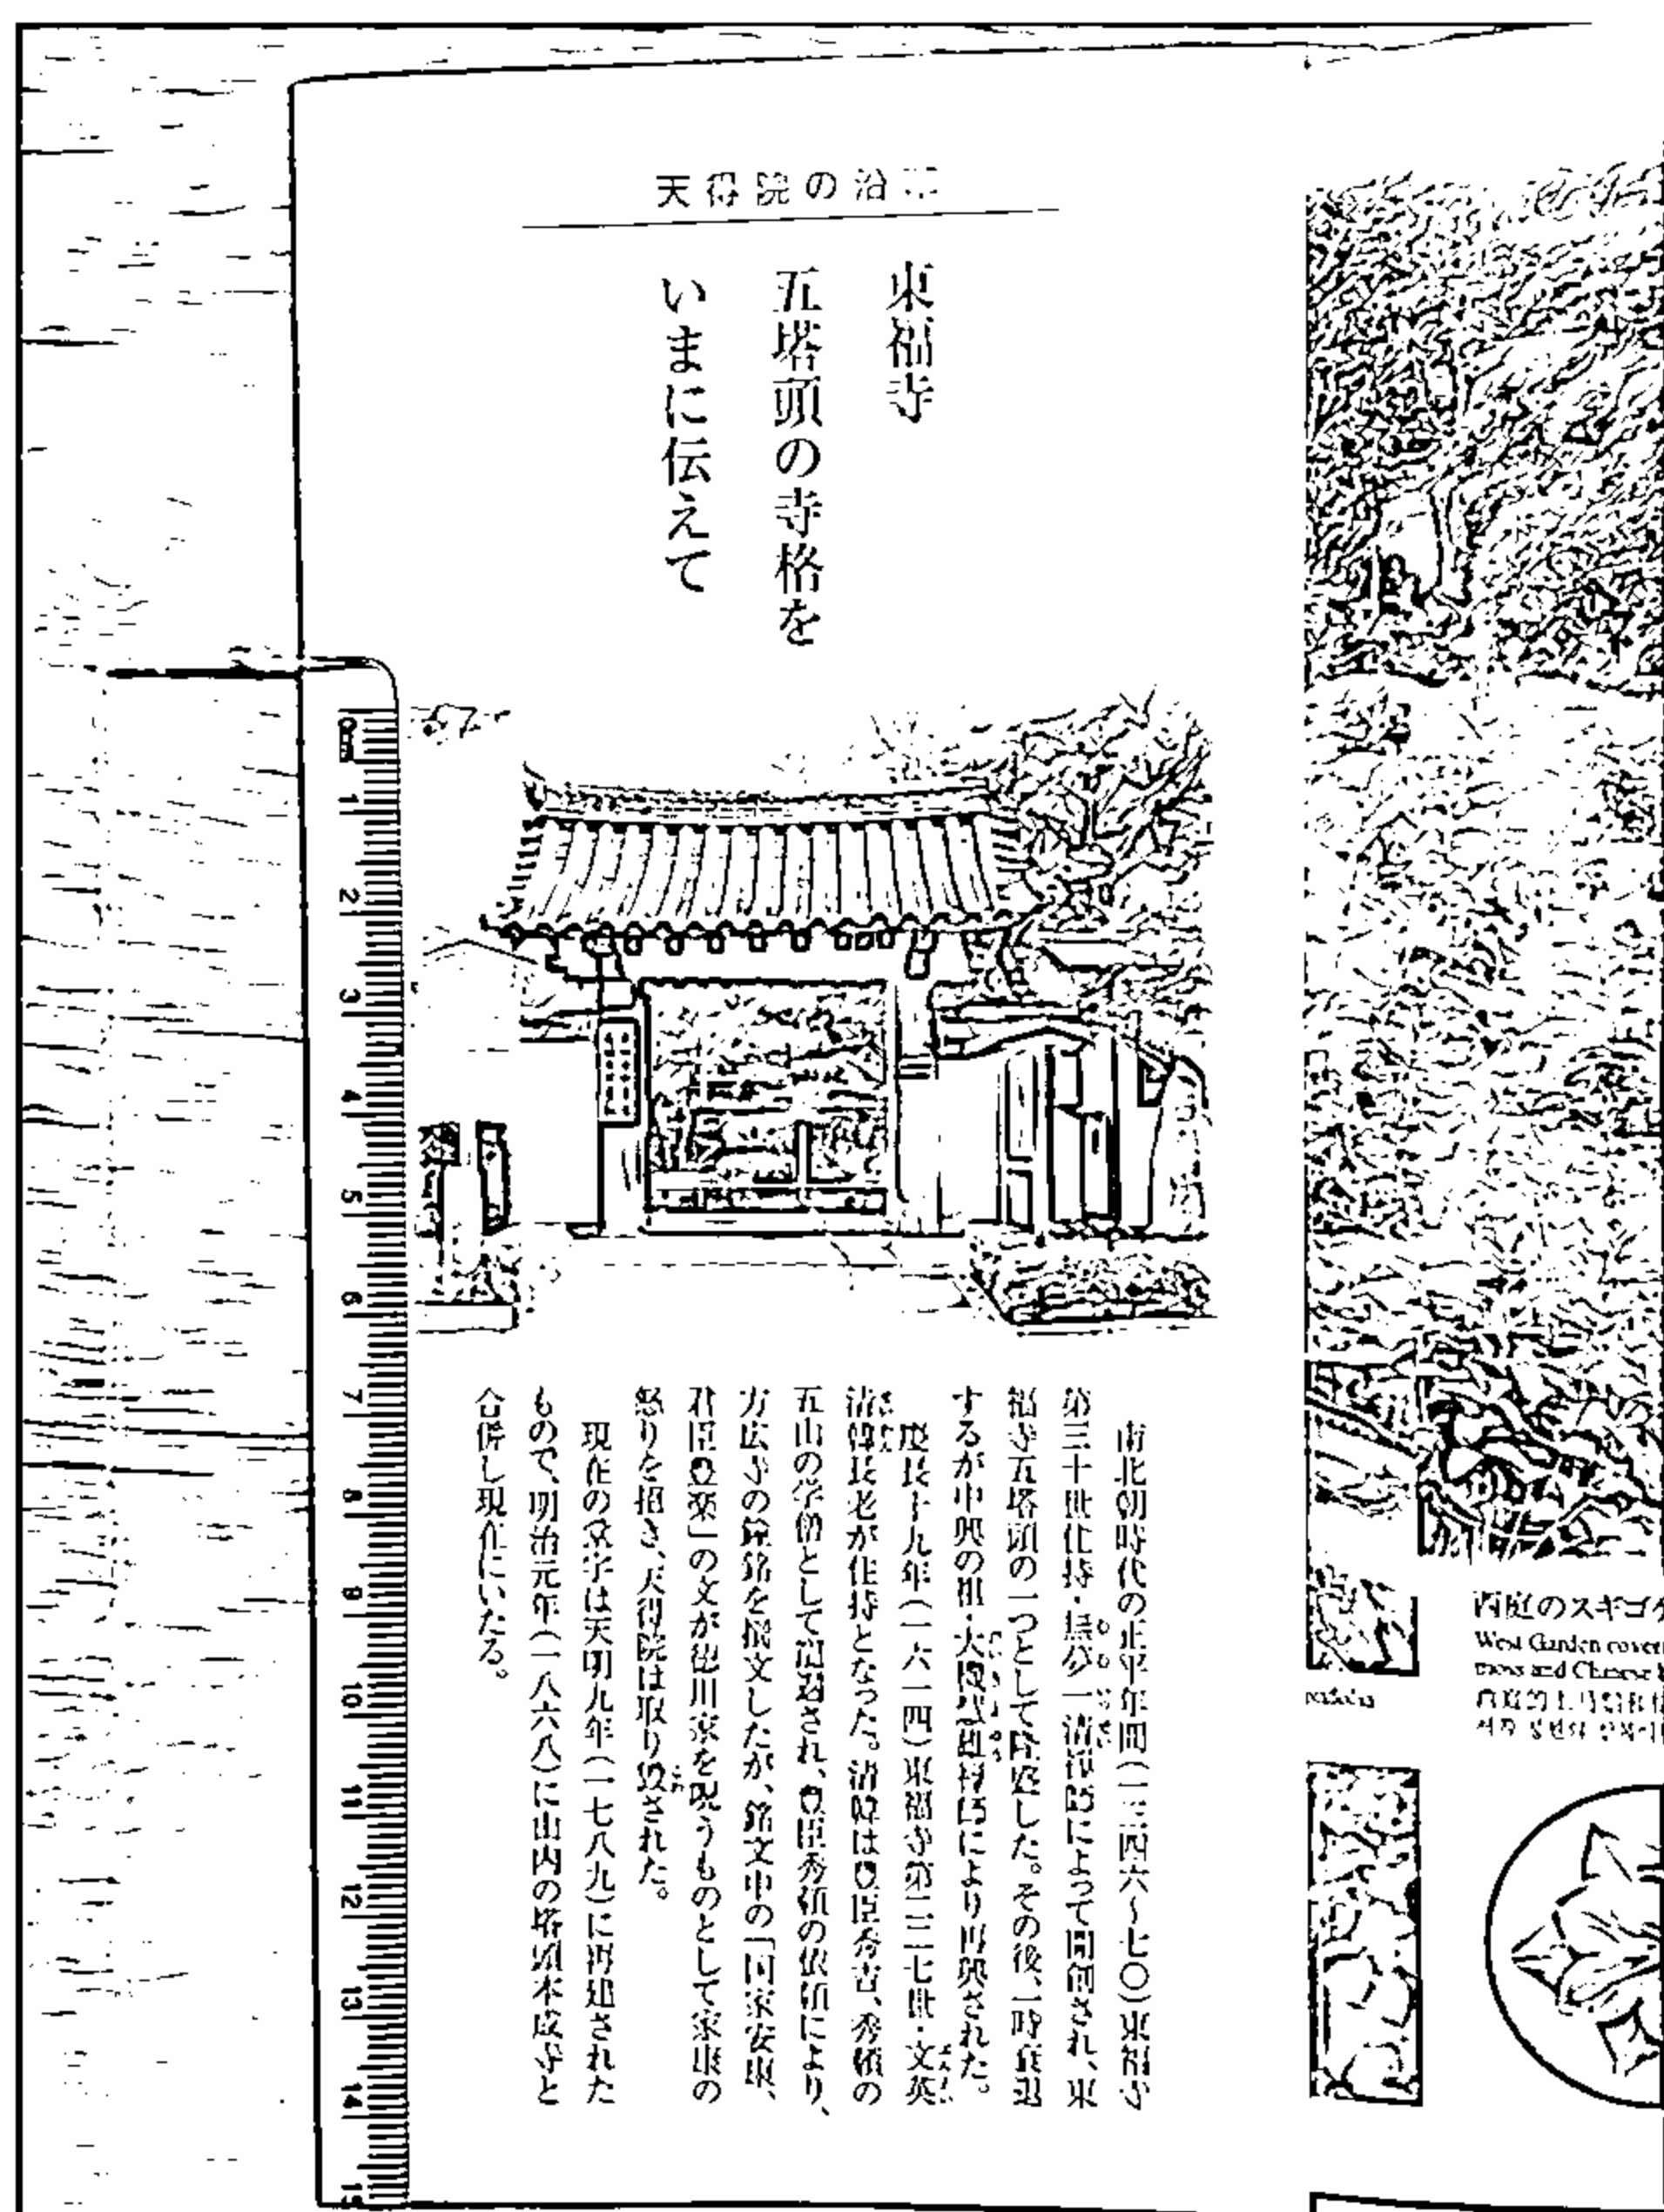 天得院の沿革
東福寺
五塔頭の寺格を
いまに伝えて
南北朝時代の正平年間(一三四六〜七〇)東福寺
第三十世住持・無夢一清禅師によって開創され、東
福寺五塔頭の一つとして隆盛した。その後、一時衰退
するが中興の祖・大機禅師により再興された。
慶長十九年(一六一四)東福寺第二二七世・文英
清韓長老が住持となった。清韓は豊臣秀吉、秀頼の
五山の学僧として遇され、豊臣秀頼の依頼により、
方広寺の鐘銘を撰文したが、銘文中の「国家安康、
君臣豊楽」の文が徳川家を呪うものとして家康の
怒りを招き、天得院は取り毀された。
現在の堂宇は天明九年(一七八九)に再建された
もので、明治元年(一八六八)に山内の塔頭本成寺と
合併し現在にいたる。
西庭のスギゴケ
West Garden covere
moss and Chinese b
0cm
1
2
3
4
5
6
7
8
9
10
11
12
13
14
15